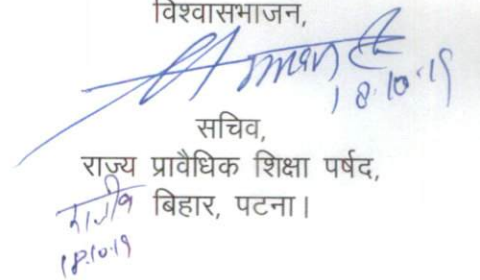 विश्वासभाजन,
18.10.19
सचिव,
राज्य प्रावैधिक शिक्षा पर्षद,
बिहार, पटना।
18.10.19